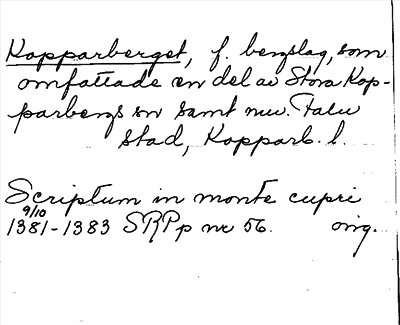 Kopparberget, f. bergslag, som
omfattade en del av Stora Kop-
parbergs sn samt nuv. Falu
stad, Kopparb. l.
Scriptum in monte cupri
9/10
1381-1383 SRPp nr 56. orig.